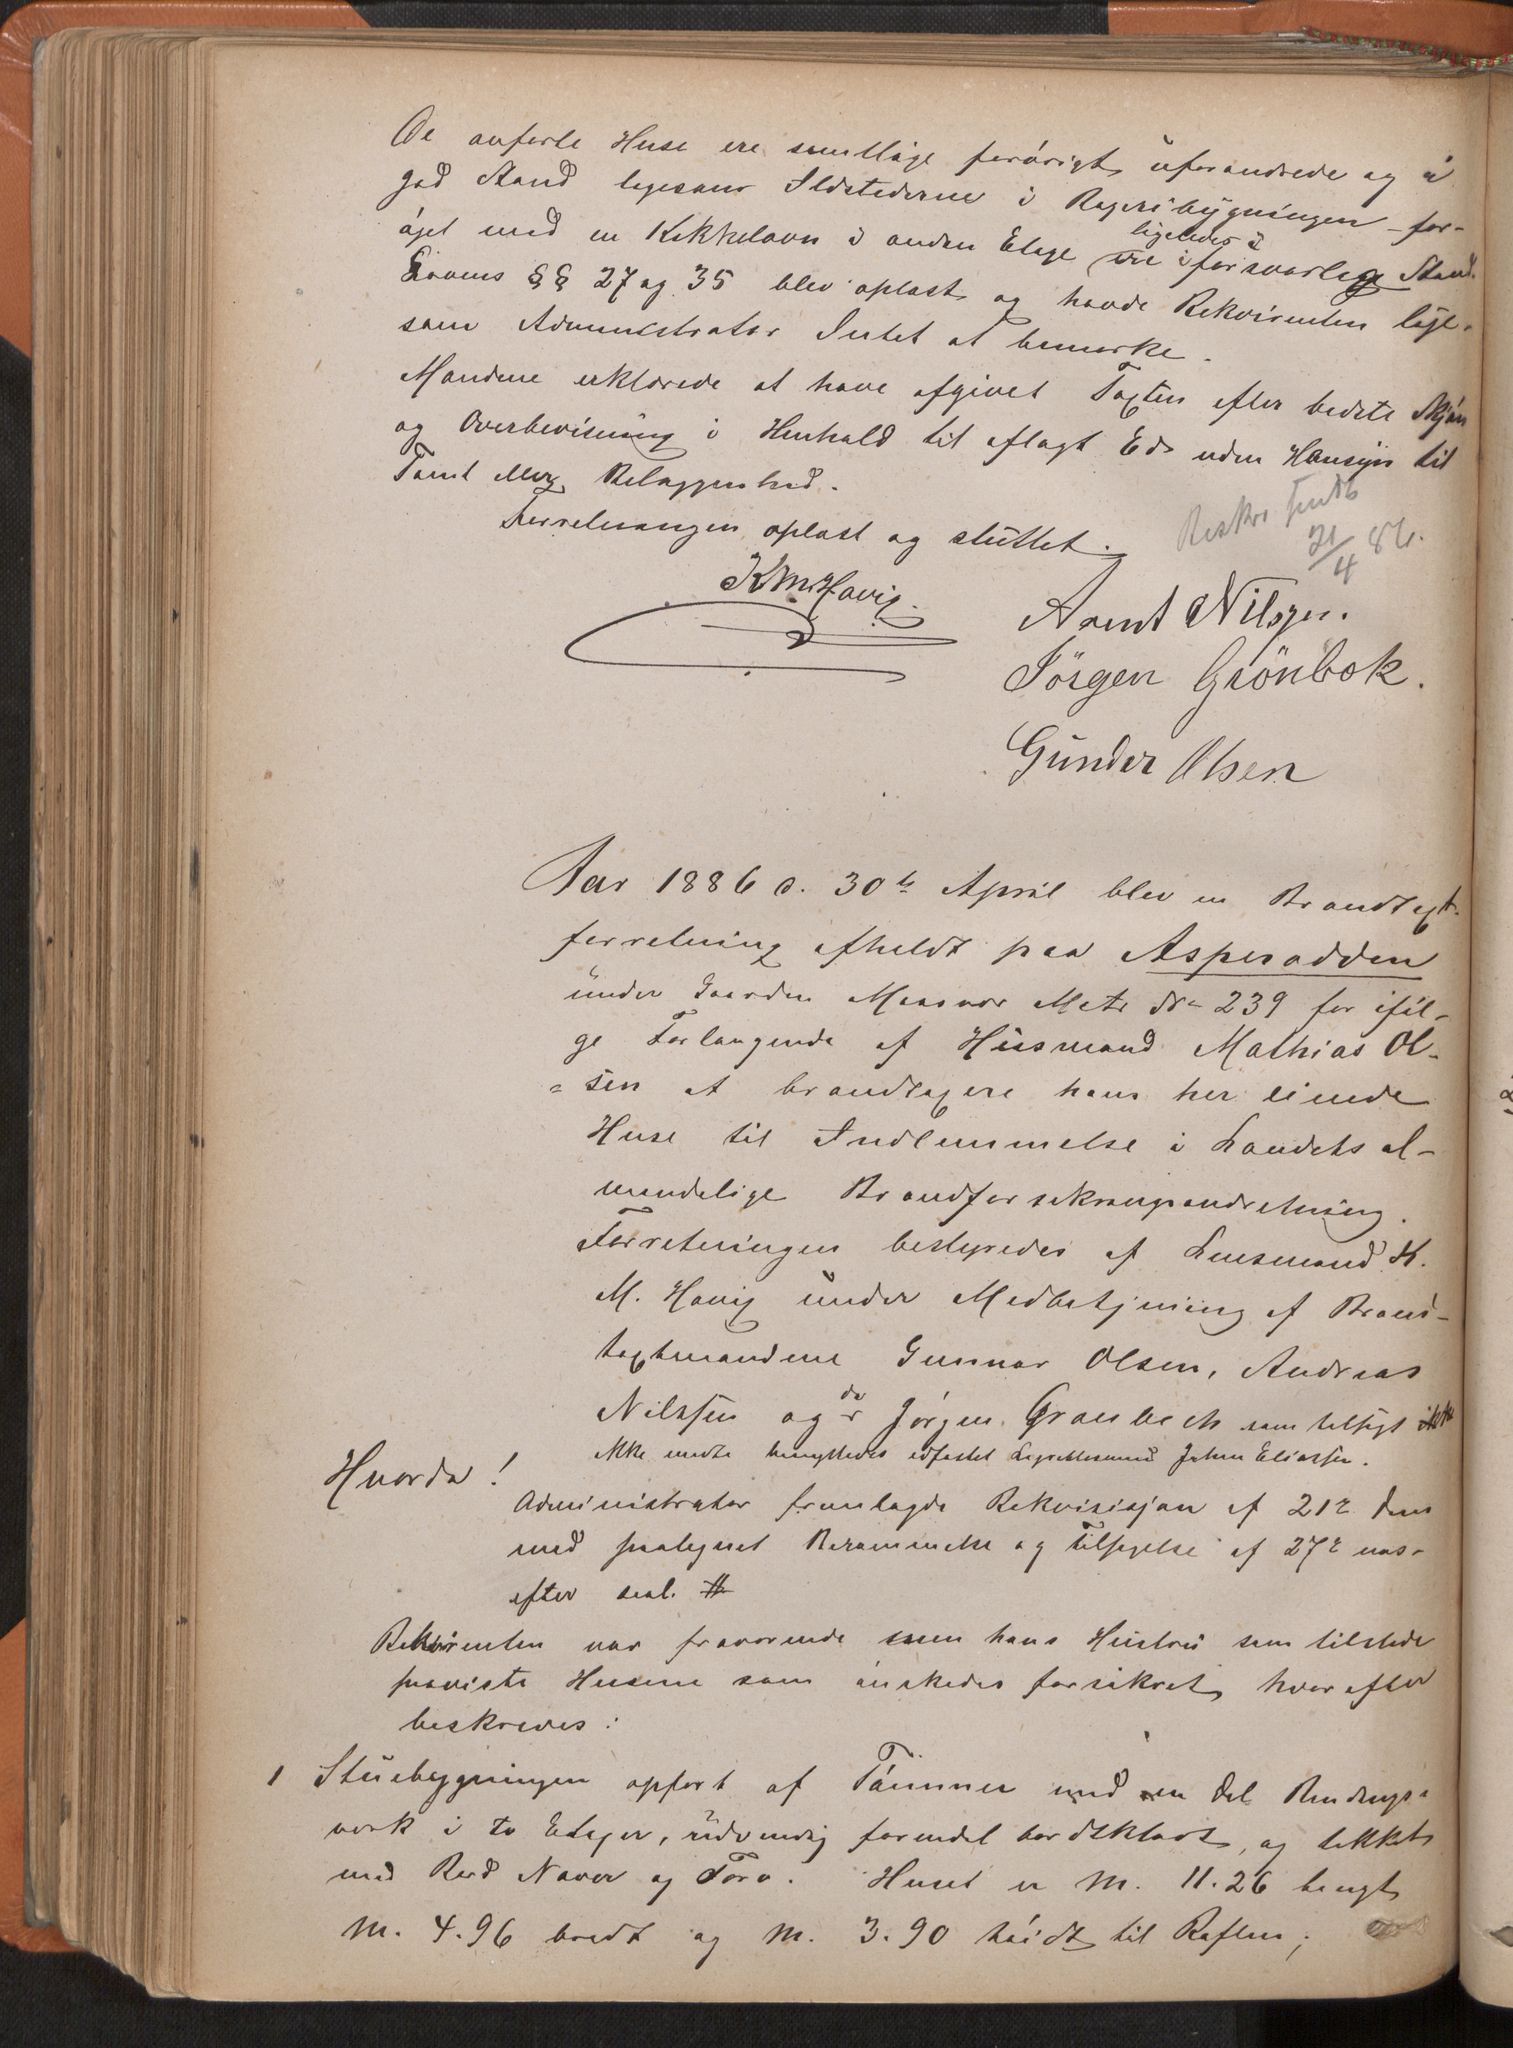 De anførte Huse ere samtlige forøvrigt uforandrede og i
god Stand ligesom Ildstederne i Bageribygningen for-
øget med en Kakkelovn i anden Etage ere ligeledes i forsvarlig Stand.
Lovens §§ 27 og 35 blev oplæst og havde Rekvirenten lige-
som Administrator Intet at bemærke.
Mændene erklærede at have afgivet Taxten efter bedste Skjøn
og Overbevisning i Henhold til aflagt Ed uden Hensyn til
Tomt eller Beliggenhed.
Forretningen oplæst og sluttet.
Beskr sendt
21/4 86.
K M. Havig.
Arent Nilsen.
Jörgen Grönbek.
Gunder Olsen
Aar 1886 d. 30te April blev en Brandtaxt-
forretning afholdt paa Asperodden
under Gaarden Maasvær Matr No 239 for iføl-
ge Forlangende af Husmand Mathias Ol-
sen at brandtaxere hans her eiende
Huse til Indlemmelse i Landets al-
mindelige Brandforsikringsindretning.
Forretningen bestyredes af Lensmand K.
M. Havig under Medbetjening af Brand-
taxtmændene Gunnar Olsen, Andreas
Nilssen og da Jørgen Grønbech som tilsagt
ikke mødte benyttedes edfæstet Lagrettesmand Johan Eliassen.
Hvorda!
Administrator fremlagde Rekvisisjon af 21de dens
med paategnet Berammelse og Tilsigelse af 27de næs-
efter saal. #
Rekvirenten var fraværende men hans Hustru som tilstede
paaviste Husene som ønskedes forsikret hvorefter
beskreves:
1 Stuebygningen opført af Tømmer med en Del Bindings-
verk i to Etager, udvendig forendel bordklædt, og tækket
med Bord Næver og Torv. Huset er M. 11.26 langt
M. 4.96 bredt og M. 3.90 høidt til Raften;